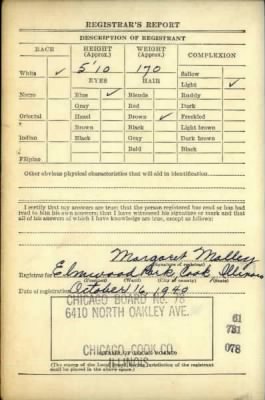 REGISTRAR'S REPORT
DESCRIPTION OF REGISTRANT
RACE HEIGHT (Approx.) WEIGHT (Approx.) COMPLEXION
White ✓ 5'10 170 Sallow
EYES HAIR Light ✓
Negro Blue ✓ Blonde Ruddy
Gray Red Dark
Oriental Hazel Brown ✓ Freckled
Brown Black Light brown
Indian Black Gray Dark brown
Bald Black
Filipino
Other obvious physical characteristics that will aid in identification
I certify that my answers are true; that the person registered has read or has had
read to him his own answers; that I have witnessed his signature or mark and that
all of his answers of which I have knowledge are true, except as follows:
Margaret Malley
(Signature of registrar)
Registrar for Elmwood Park Cook Illinois
(Ward) (City or county) (State)
Date of registration October 16, 1940
CHICAGO BOARD NO. 78
6410 NORTH OAKLEY AVE.
61
731
078
CHICAGO COOK CO.
ILLINOIS
(The stamp of the Local Board having jurisdiction of the registrant
shall be placed in the above space)